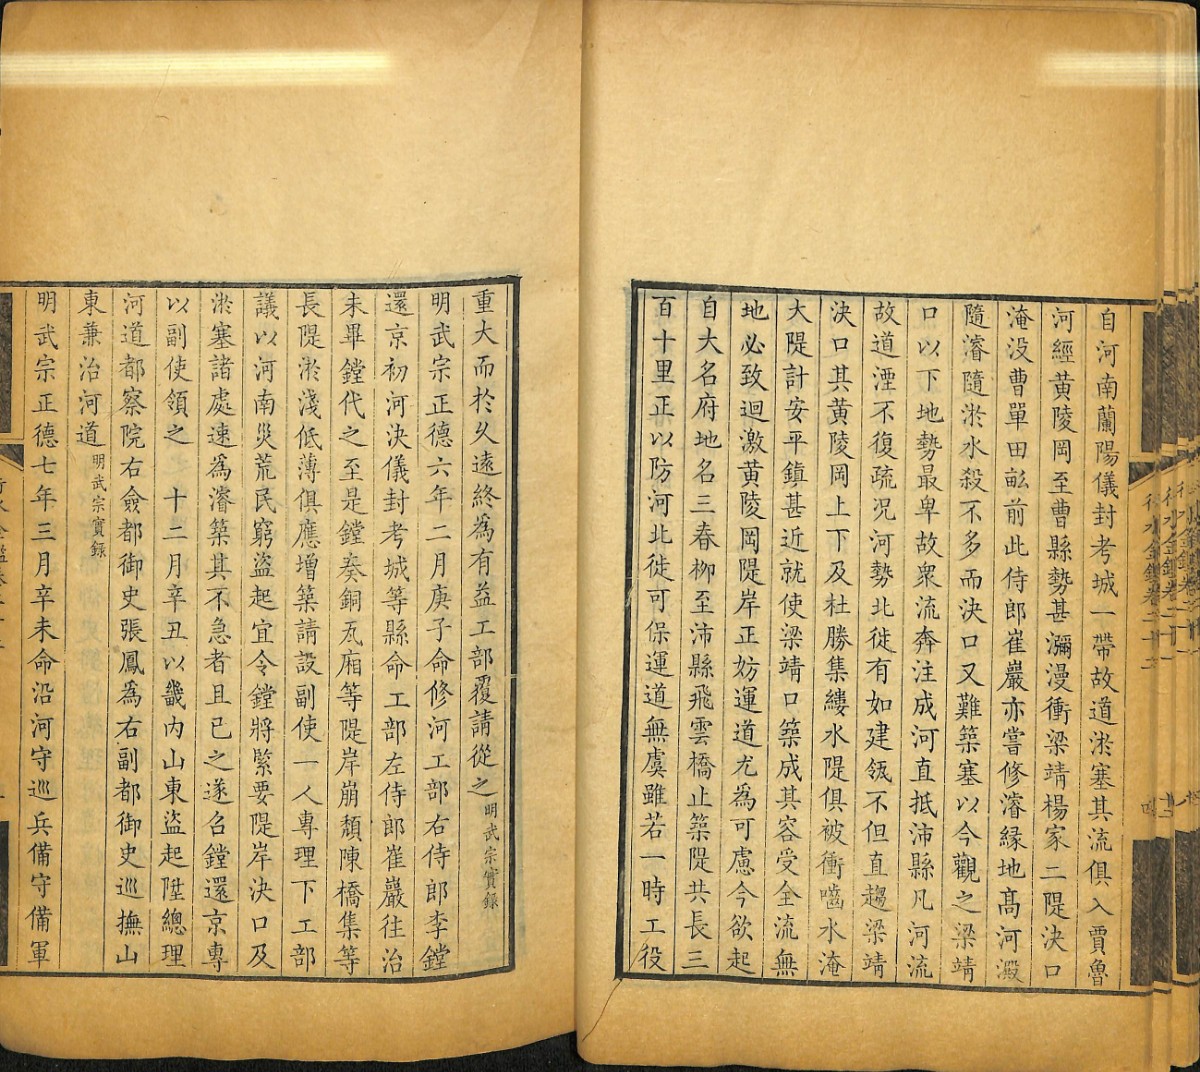 自河南蘭陽儀封考城一帶故道淤塞其流俱入賈魯
河經黃陵岡至曹縣勢甚瀰漫衝梁靖楊家二隄決口
淹没曹單田畝前此侍郎崔巖亦嘗修濬緣地高河澱
隨濬隨淤水殺不多而決口又難築塞以今觀之梁靖
口以下地勢最卑故衆流奔注成河直抵沛縣凡河流
故道湮不復疏況河勢北徙有如建瓴不但直趨梁靖
決口其黃陵岡上下及杜勝集縷水隄俱被衝嚙水淹
大隄計安平鎮甚近就使梁靖口築成其容受全流無
地必致迴激黃陵岡隄岸正妨運道尤為可慮今欲起
自大名府地名三春柳至沛縣飛雲橋止築隄共長三
百十里正以防河北徙可保運道無虞雖若一時工役
重大而於久遠終為有益工部覆請從之明武宗實録
明武宗正德六年二月庚子命修河工部右侍郎李鏜
還京初河決儀封考城等縣命工部左侍郎崔巖往治
未畢鏜代之至是鏜奏銅瓦廂等隄岸崩頽陳橋集等
長隄淤淺低薄俱應增築請設副使一人專理下工部
議以河南災荒民窮盜起宜令鏜將緊要隄岸決口及
淤塞諸處速為濬築其不急者且已之遂召鏜還京專
以副使領之 十二月辛丑以畿内山東盜起陞總理
河道都察院右僉都御史張鳳為右副都御史巡撫山
東兼治河道明武宗實録
明武宗正德七年三月辛未命沿河守巡兵備守備軍